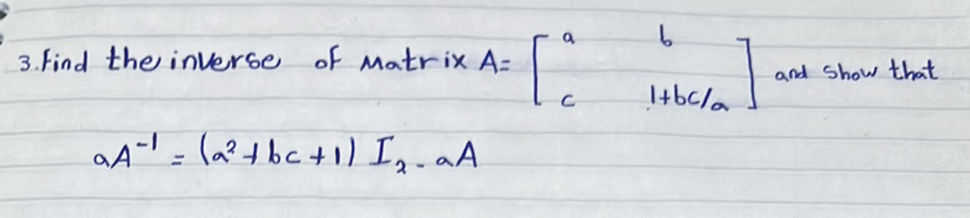 3. Find the inverse of Matrix A= [ a b
c 1+bc/a ] and show that
aA⁻¹ = (a²+bc+1) I₂ - aA